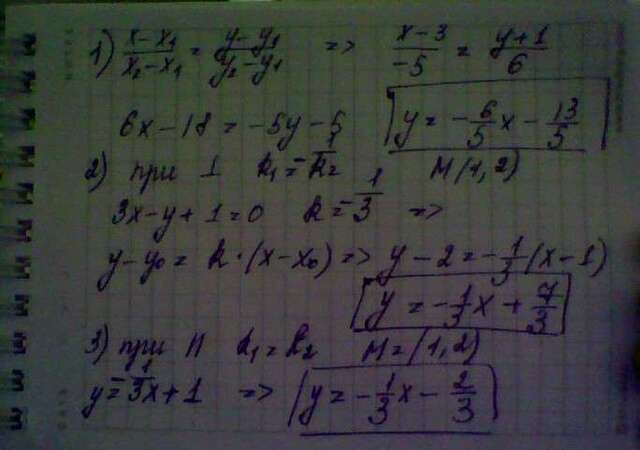 1) (x-x₁)/(x₂-x₁) = (y-y₁)/(y₂-y₁) => (x-3)/-5 = (y+1)/6
6x-18 = -5y-5 y = -6/5x - 13/5
2) при ⊥ k₁ = -1/k₂ M(1,2)
3x-y+1=0 k = -1/3 =>
y-y₀ = k·(x-x₀) => y-2 = -1/3(x-1)
y = -1/3x + 7/3
3) при || k₁=k₂ M=(1,2)
y = -1/3x+1 => y = -1/3x - 2/3